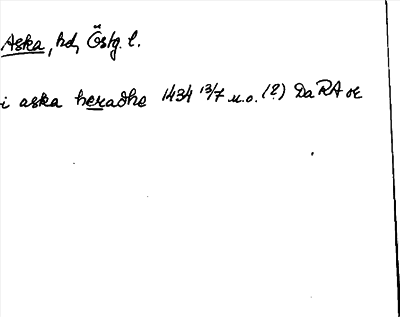 Aska, hd, Östg. l.
i aska heradhe 1434 13/7 u.o. (?) Da RA oz